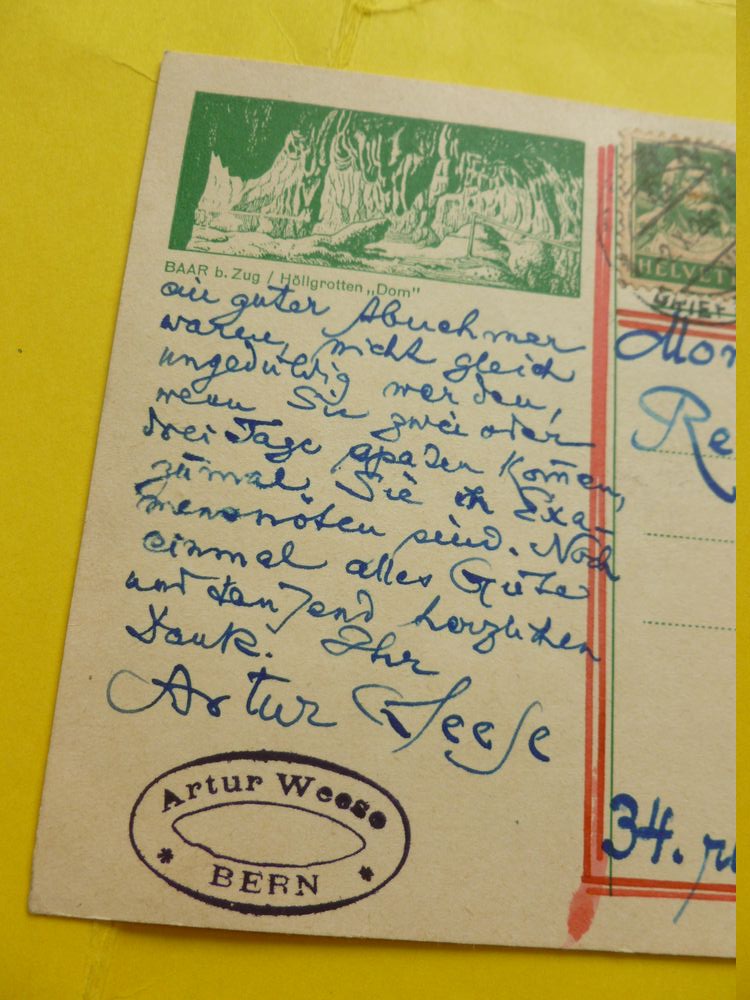 BAAR b. Zug / Höllgrotten „Dom"
ein guter Abnehmer
waren, nicht gleich
ungeduldig werden,
wenn Sie zwei oder
drei Tage spaten komen,
zumal Sie in Exa-
mensnöten sind. Noch
einmal alles Gute
und tausend herzlichen
Dank. Ihr
Artur Weese
Artur Weese
* BERN *
HELVET
Mon
Re
34. ru